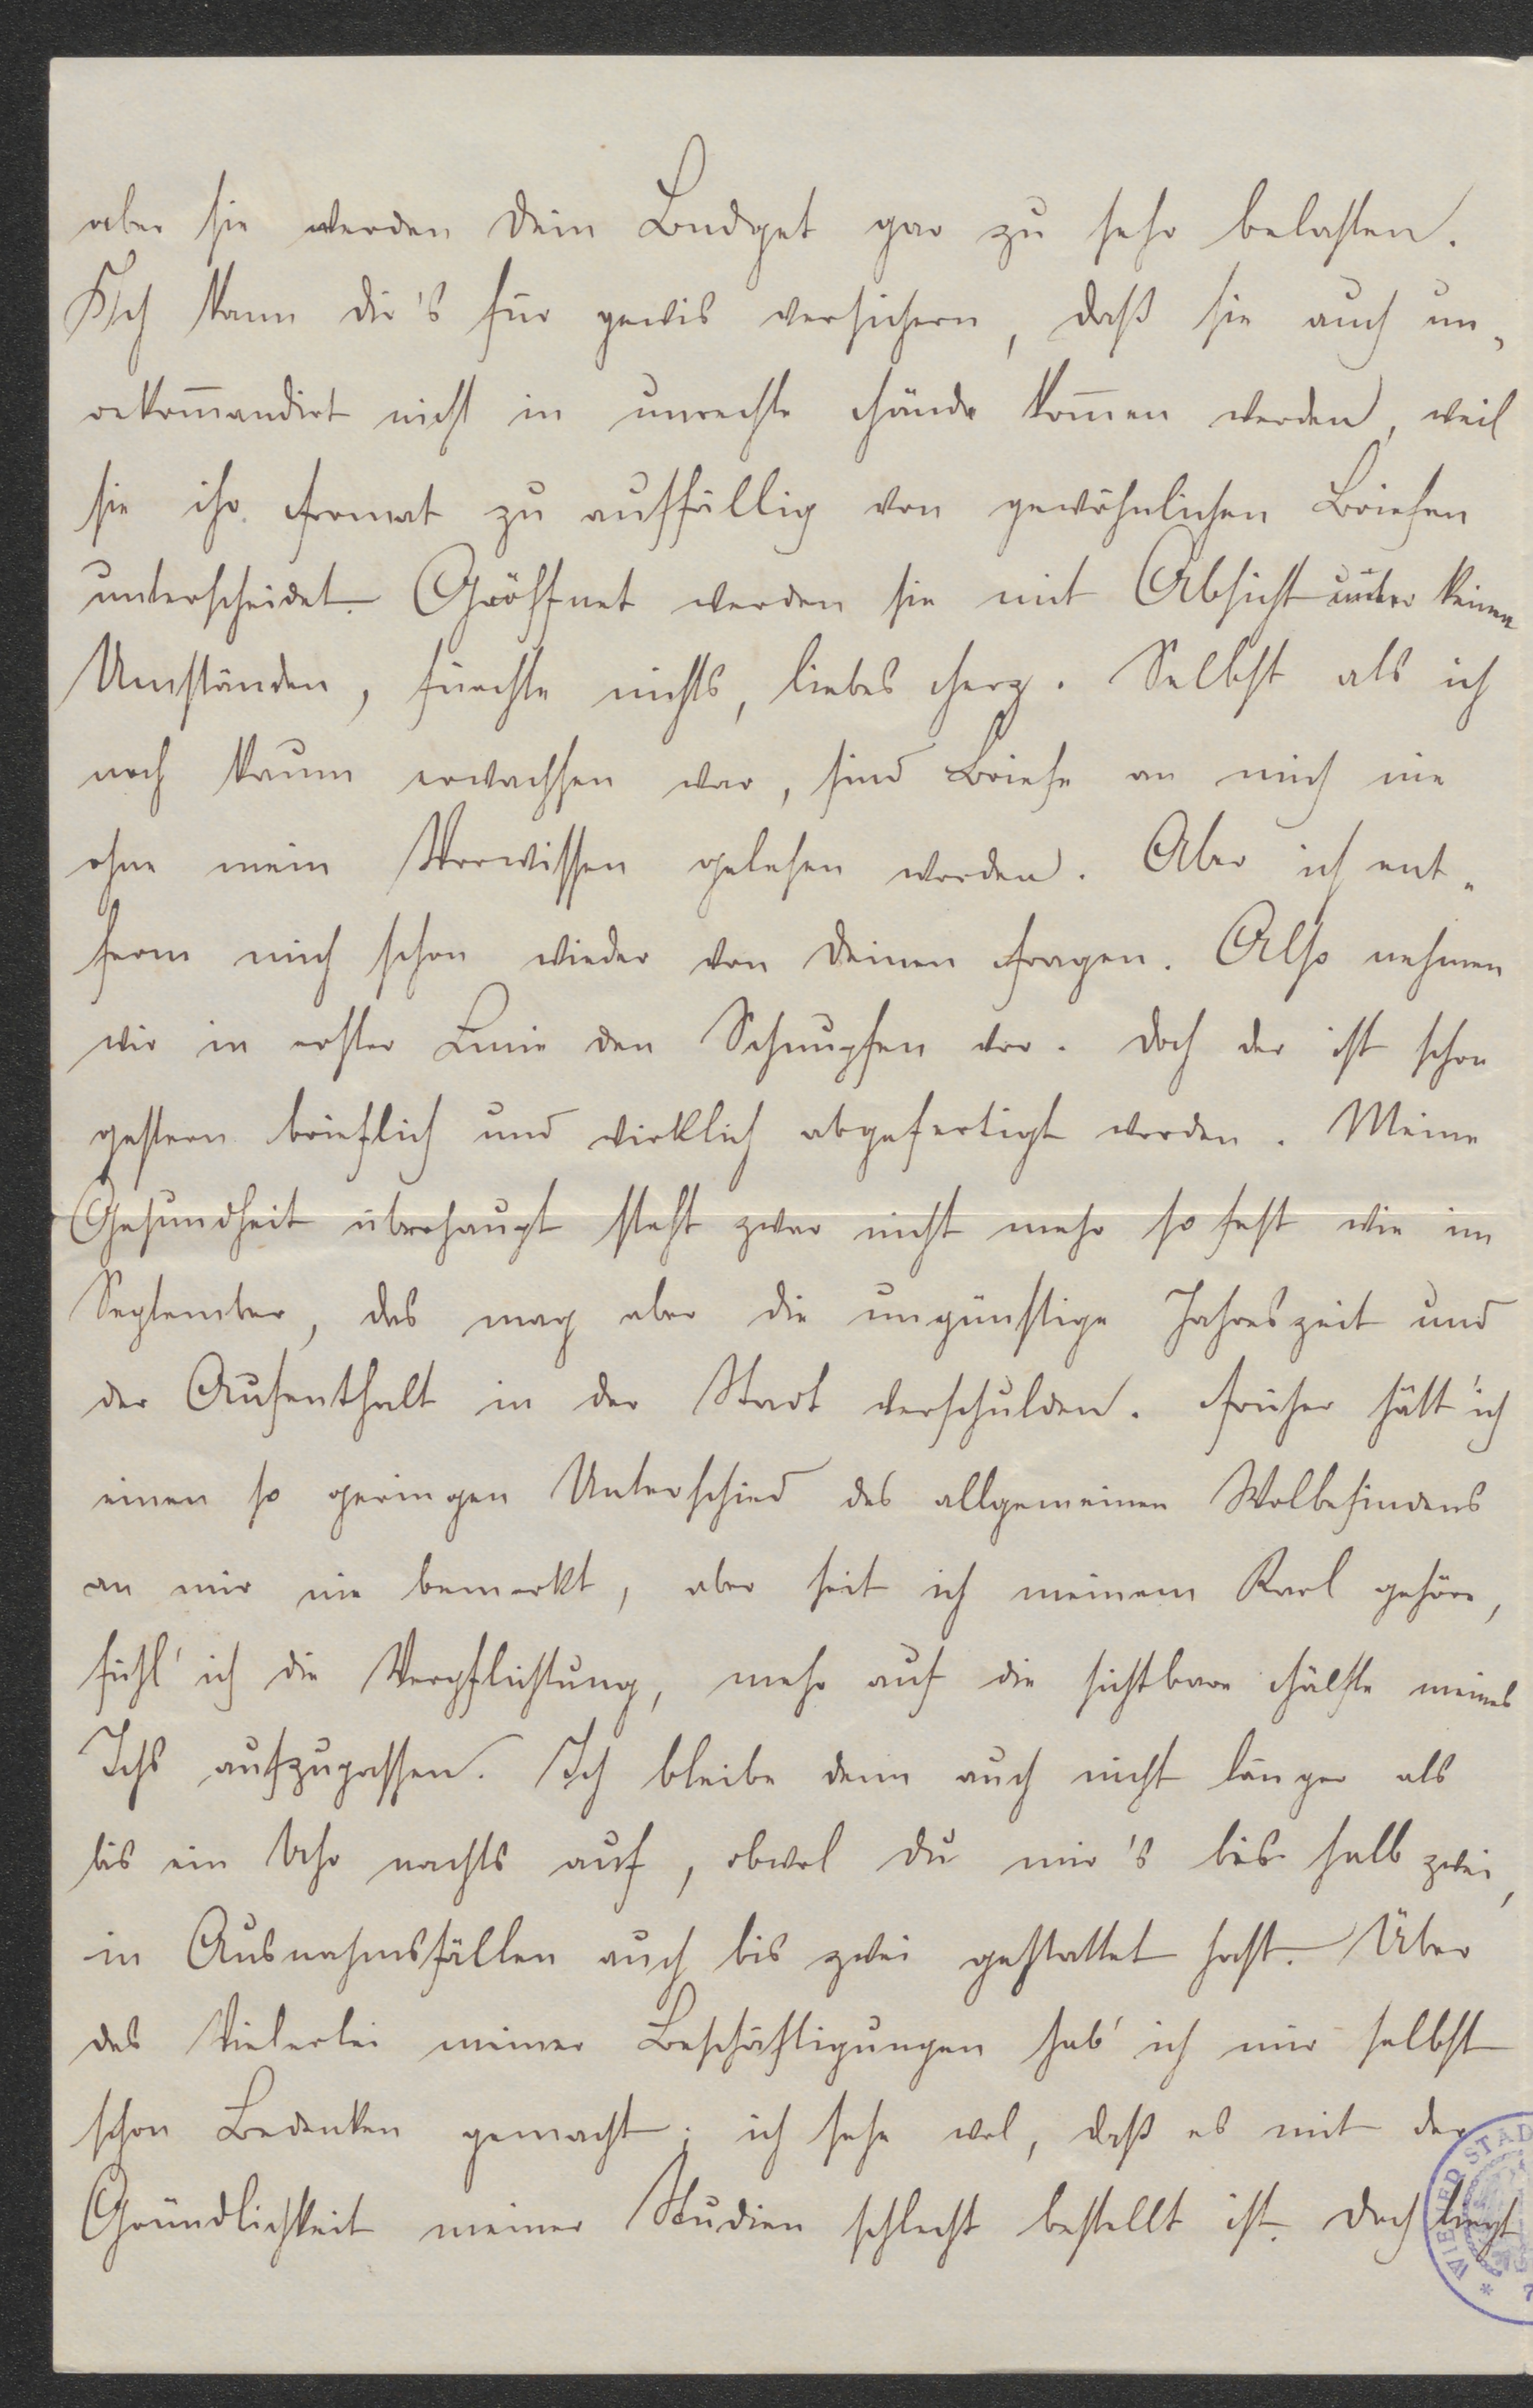 aber sie werden dein Budget gar zu sehr belasten.
Ich kann dir's für gewis versichern, daß sie auch un-
rekom̄andirt nicht in unrechte Hände kom̄en werden, weil
sie ihr Format zu auffällig von gewöhnlichen Briefen
unterscheidet. Geöffnet werden sie mit Absicht unter keinen
Umständen, fürchte nichts, liebes Herz. Selbst als ich
noch kaum erwachsen war, sind Briefe an mich nie
ohne mein Vorwissen gelesen worden. Aber ich ent-
fern mich schon wieder von deinen Fragen. Also nehmen
wir in erster Linie den Schnupfen vor. Doch der ist schon
gestern brieflich und wirklich abgefertigt worden. Meine
Gesundheit überhaupt steht zwar nicht mehr so fest wie im
September, das mag aber die ungünstige Jahreszeit und
der Aufenthalt in der Stadt verschulden. Früher hätt' ich
einen so geringen Unterschied des allgemeinen Wolbefindens
an mir nie bemerkt, aber seit ich meinem Karl gehöre,
fühl' ich die Verpflichtung, mehr auf die sichtbare Hälfte meines
Ichs aufzupassen. Ich bleibe denn auch nicht länger als
bis ein Uhr nachts auf, obwol du mir's bis halb zwei,
in Ausnahmsfällen auch bis zwei gestattet hast. Über
das Vielerlei meiner Beschäftigungen hab' ich mir selbst
schon Bedenken gemacht; ich sehe wol, daß es mit der
Gründlichkeit meiner Studien schlecht bestellt ist. Doch liegt
WIENER STAD